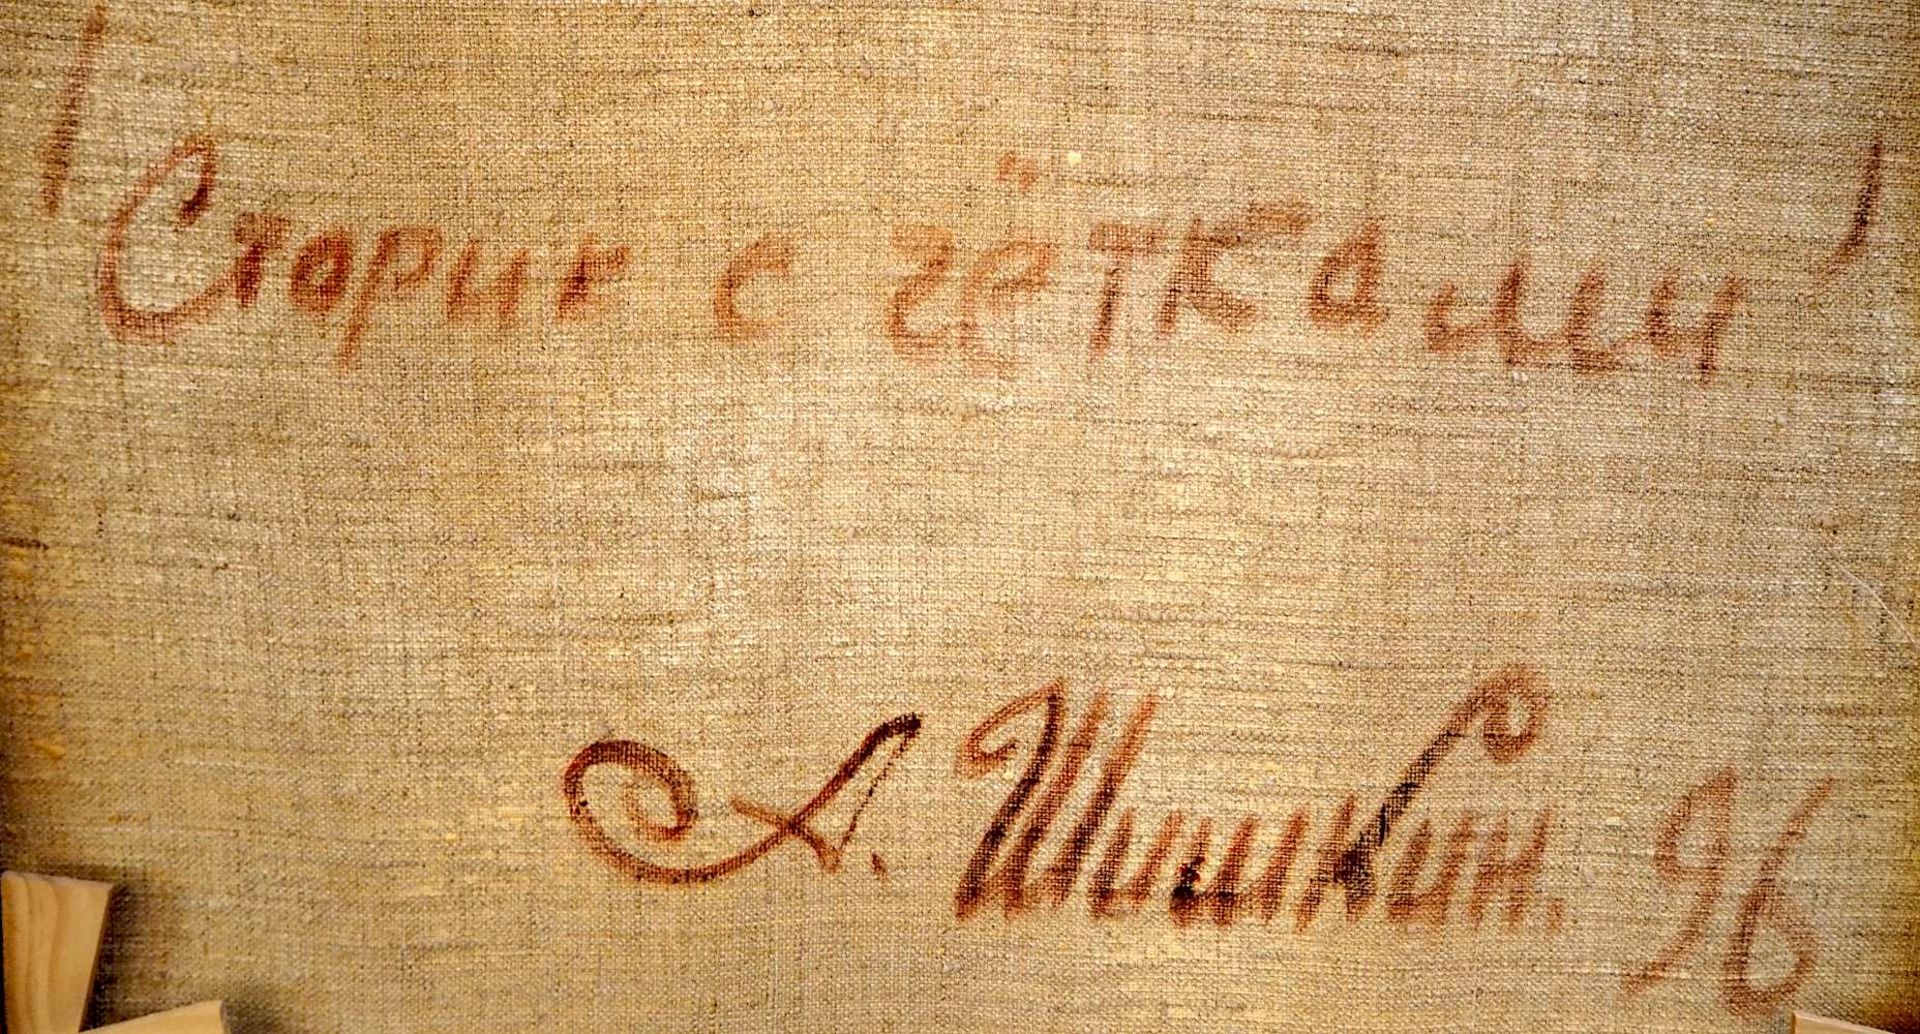 "Сторик с чётками"
А. Шишкин. 96